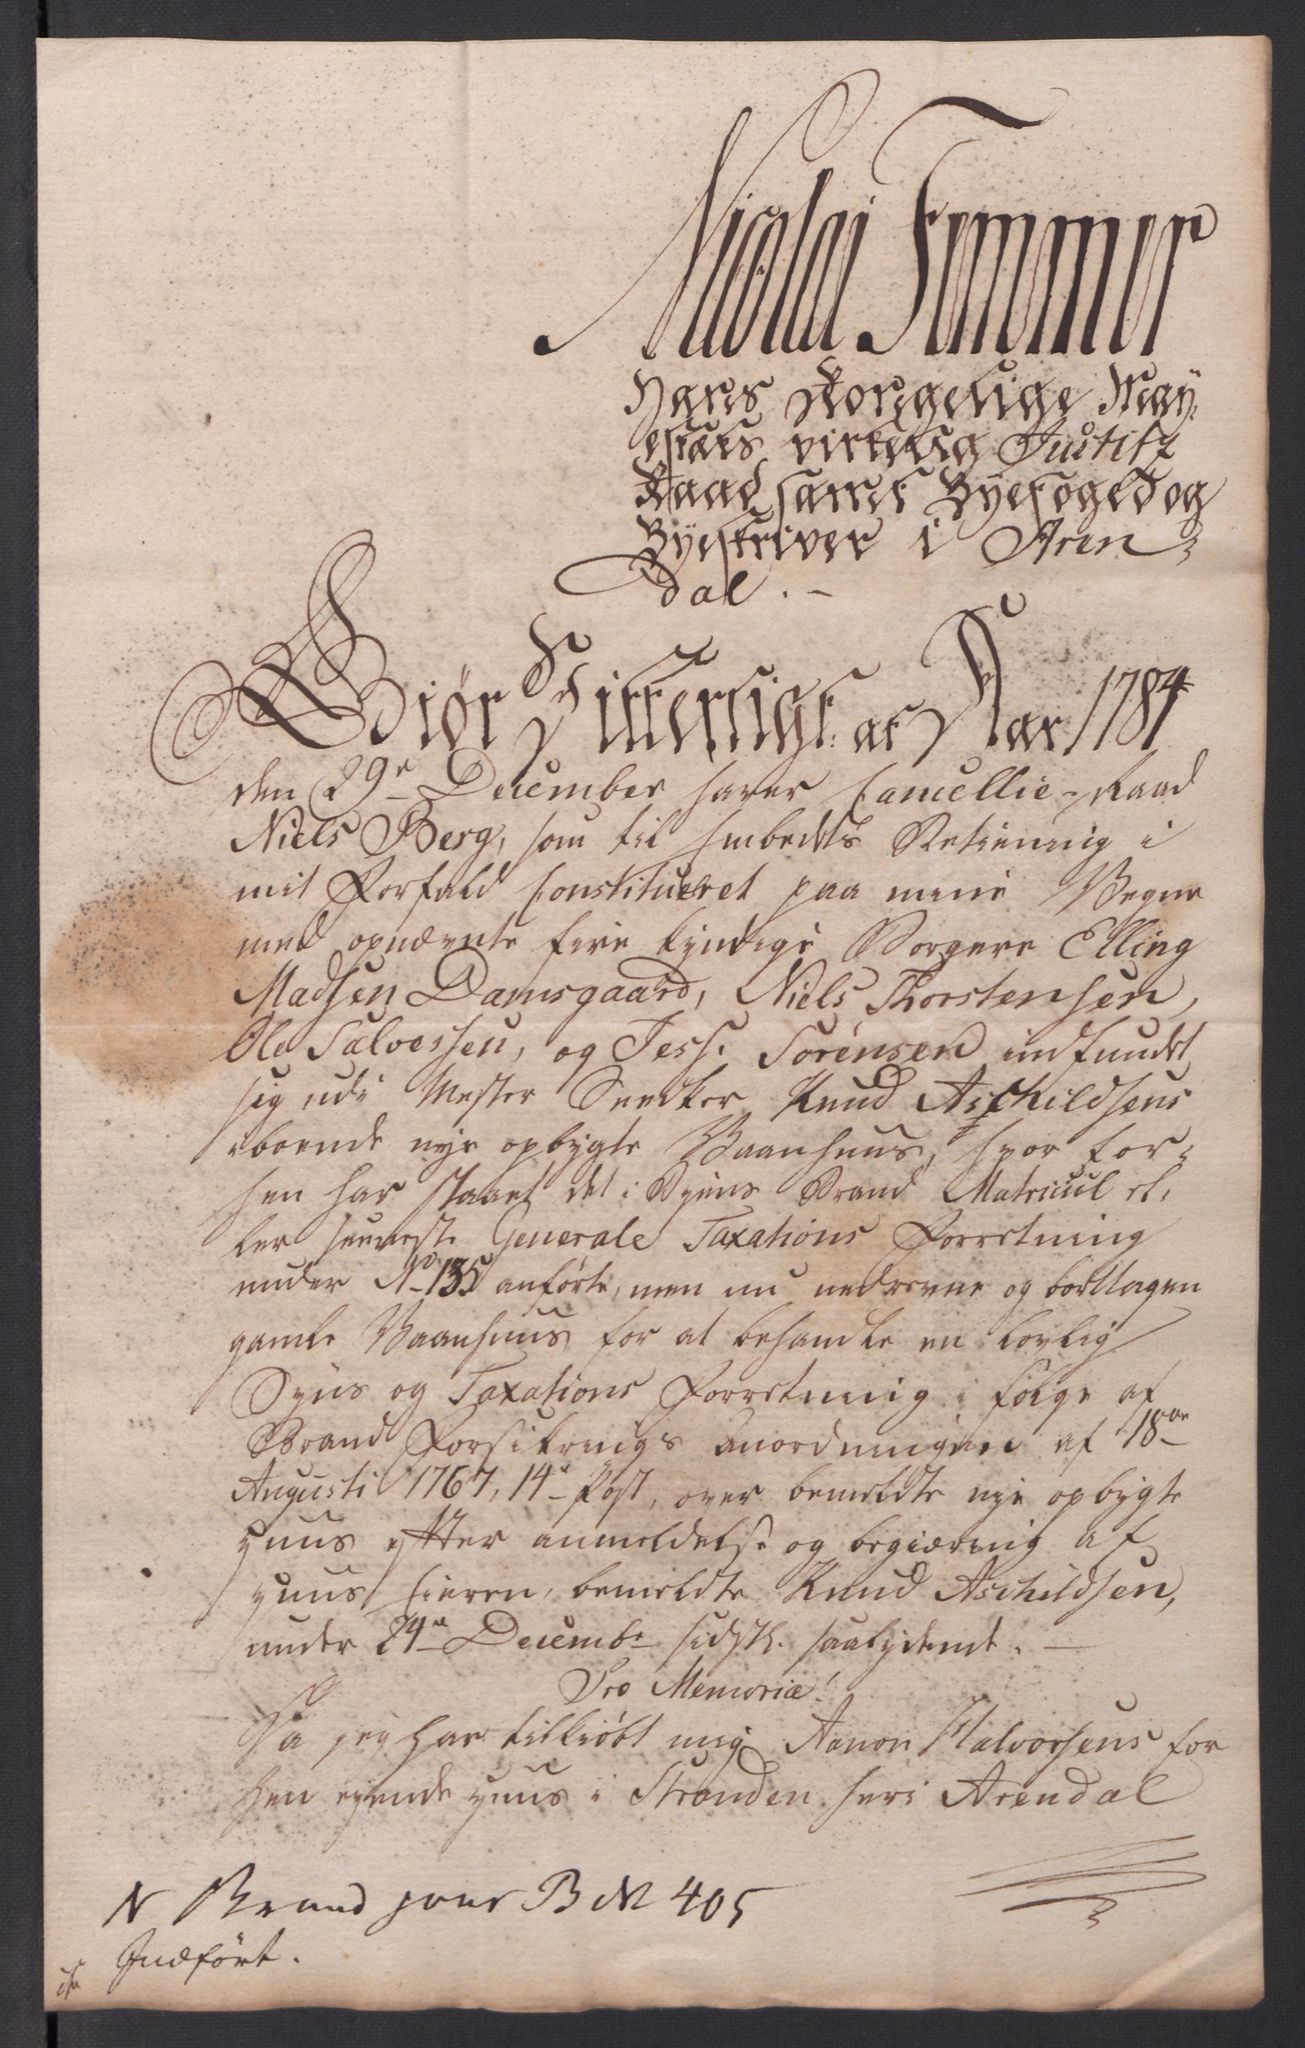 Nicolai Femmer
Hans Kongelige May-
estæts virkelig Justitz
Raad samt Byefoged og
Byeskriver i Aren-
dal. -
Giør Vitterligt at Aar 1784
den 29de December haver Cancellie-Raad
Niels Berg, som til Embedets Betiening i
mit Forfald constitueret paa mine Vegne
med opnævnte fire kyndige Borgere Elling
Madsen Damsgaard, Niels Thorstensen,
Ole Salvessen, og Jess. Sørensen indfundet
sig udi Mester Snedker Knud Aschildsens
iboende nye opbygte Vaanhuus, hvor for-
hen har staaet det i Byens Brand Matricul el-
ler seeneste Generale Taxations Forretning
under No 135 anførte, men nu nedrevne og borttagen
gamle Vaanhuus for at behandle en lovlig
Syns og Taxations Forretning i følge af
Brand Forsikrings Anordningen af 18de
Augusti 1767, 14de Post, over bemeldte nye opbygte
Huus efter anmeldelse og begiæring af
Huus Eieren, bemeldte Knud Aschildsen,
under 24de Decembr sidstl. saalydende. -
Pro Memoria!
Da jeg har tilkiøbt mig Aanon Halvorsens for
hen eyende Huus i Stranden her i Arendal
N Brand B N 405
Indført.